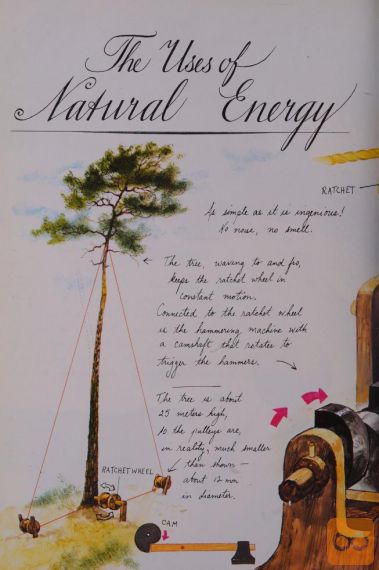 The Uses of
Natural Energy
RATCHET
As simple as it is ingenious!
No noise, no smell.
The tree, waving to and fro,
keeps the ratchet wheel in
constant motion.
Connected to the ratchet wheel
is the hammering machine with
a camshaft that rotates to
trigger the hammers.
The tree is about
25 meters high,
so the pulleys are,
in reality, much smaller
than shown —
about 12 mm
in diameter.
RATCHET WHEEL
CAM